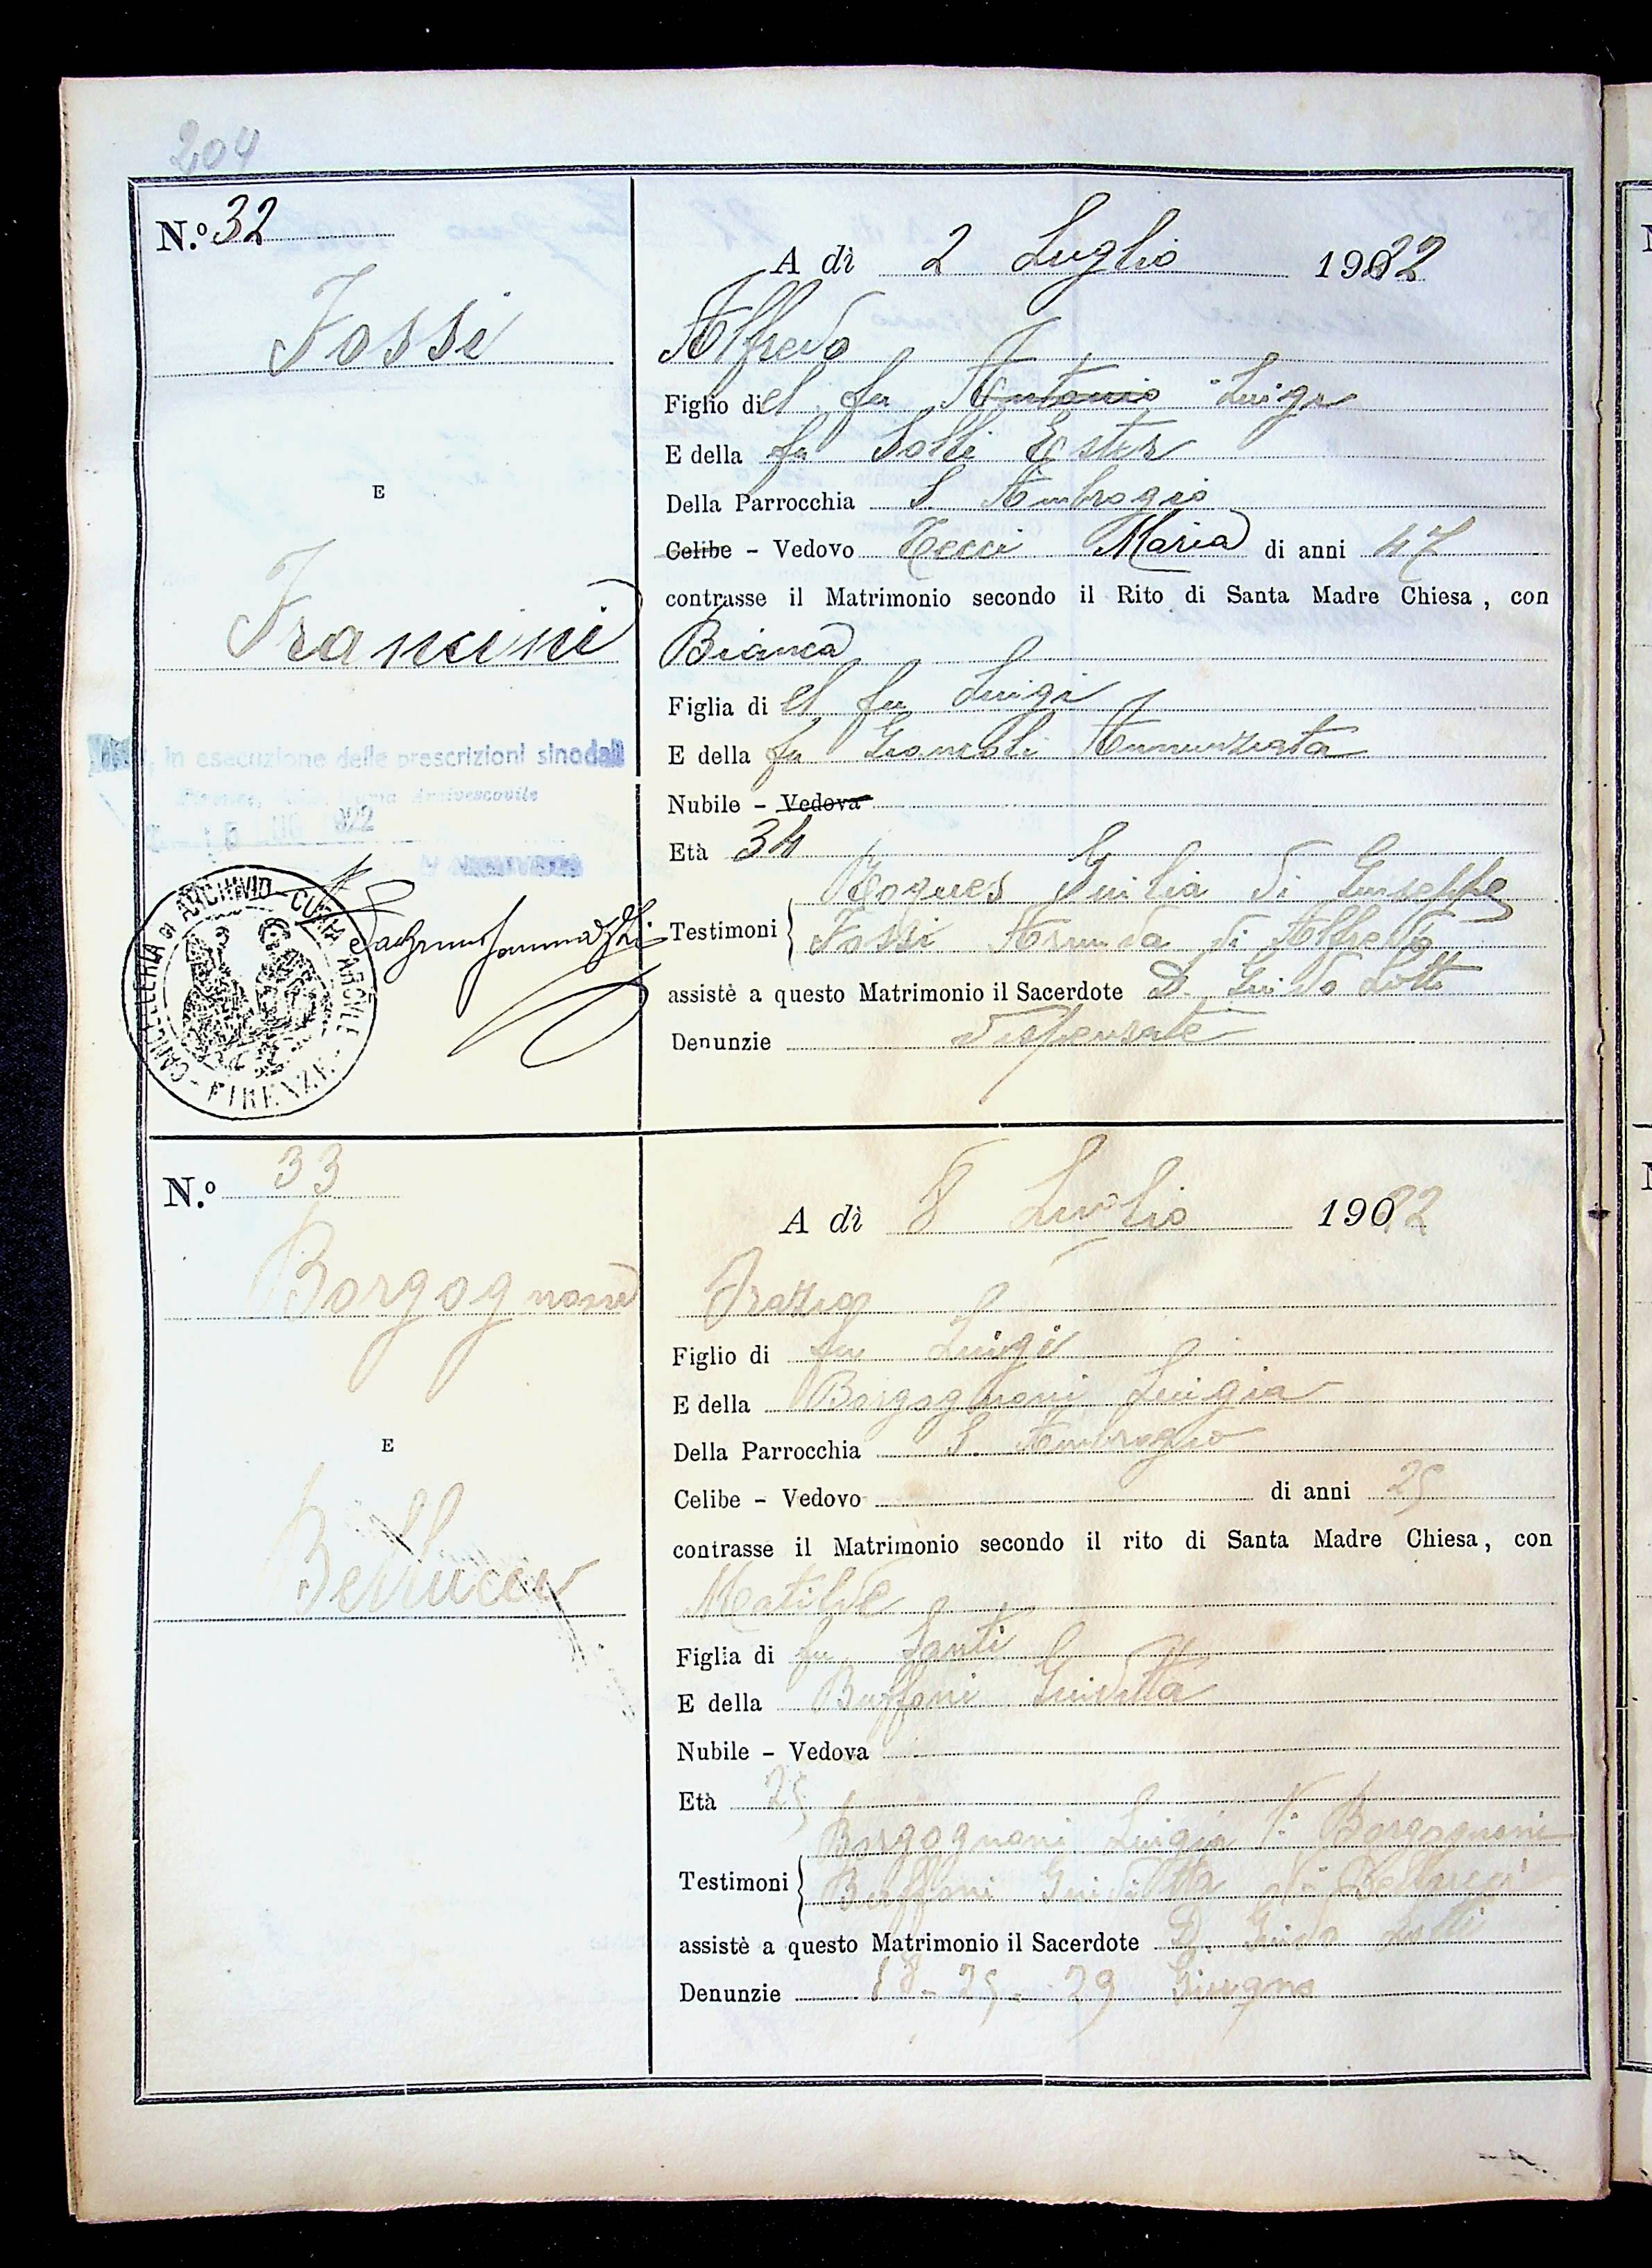 204
N.º 32
A dì 2 Luglio 1922
Fossi
Alfredo
Figlio del fu Antonio Luigi
E della fu Solli Ester
Della Parrocchia S. Ambrogio
E
Celibe - Vedovo Tecci Maria di anni 47
contrasse il Matrimonio secondo il Rito di Santa Madre Chiesa, con
Francini
Bianca
Figlia del fu Luigi
E della fu Giancoli Annunziata
In esecuzione delle prescrizioni sinodali
Firenze, dalla Curia Arcivescovile
1922
Nubile - Vedova
Età 34
Giulia di Giuseppe
Testimoni Fossi Armida di Alfredo
assistè a questo Matrimonio il Sacerdote D. Guido Lotti
Denunzie dispensate
CANCELLERIA DI ARCHIVIO - CURIA ARCIVLE - FIRENZE -
N.º 33
A dì 8 Luglio 1922
Borgognoni
Figlio di fu Luigi
E della Borgognoni Luigia
Della Parrocchia S. Ambrogio
E
Celibe - Vedovo di anni 25
contrasse il Matrimonio secondo il rito di Santa Madre Chiesa, con
Bellucci
Matilde
Figlia di fu Santi
E della Buffoni Giuditta
Nubile - Vedova
Età 25
Borgognoni Luigia di Borgognoni
Testimoni Buffoni Giuditta di Bellucci
assistè a questo Matrimonio il Sacerdote D. Guido Lotti
Denunzie 18 - 25 - 29 Giugno